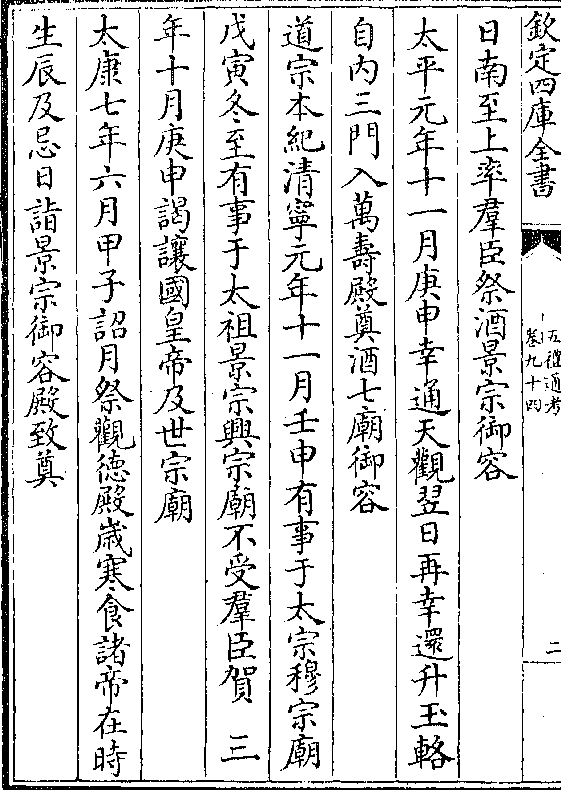 欽定四庫全書
五禮通考
卷九十四
二
日南至上率羣臣祭酒景宗御容
太平元年十一月庚申幸通天觀翌日再幸還升玉輅
自内三門入萬壽殿奠酒七廟御容
道宗本紀清寧元年十一月壬申有事于太宗穆宗廟
戊寅冬至有事于太祖景宗興宗廟不受羣臣賀　三
年十月庚申謁讓國皇帝及世宗廟
太康七年六月甲子詔月祭觀德殿歲寒食諸帝在時
生辰及忌日詣景宗御容殿致奠